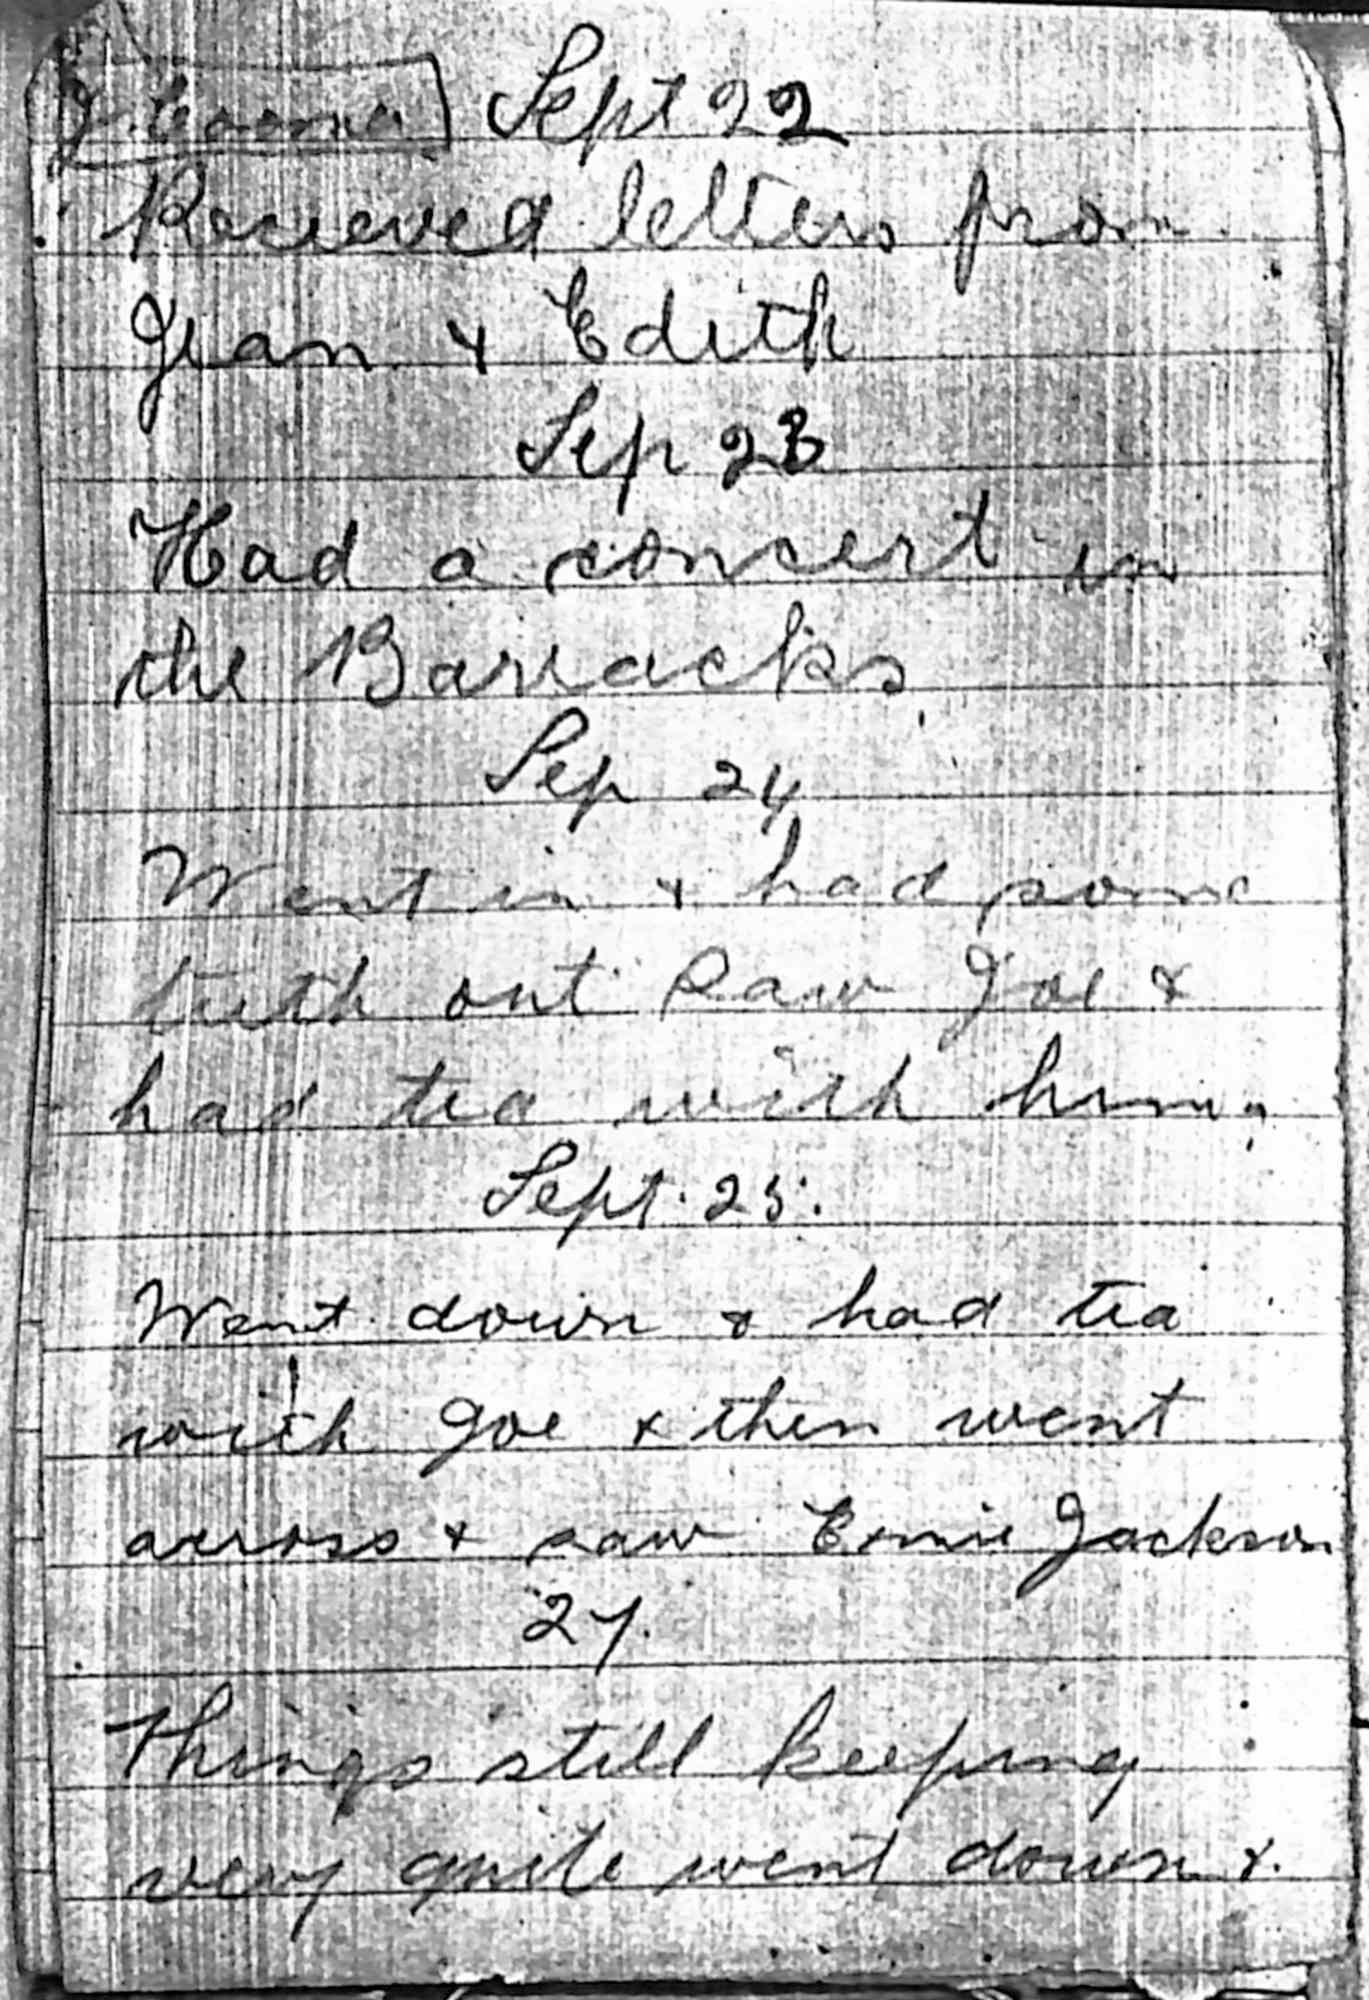 Sept 22
Recieved letters from
Jean & Edith
Sep 23
Had a concert in
the Barracks
Sep 24
Went in & had some
teeth out saw Joe &
had tea with him.
Sept. 25.
Went down & had tea
with Joe & then went
across & saw Ernie Jackson
27.
Things still keeping
very quite went down &